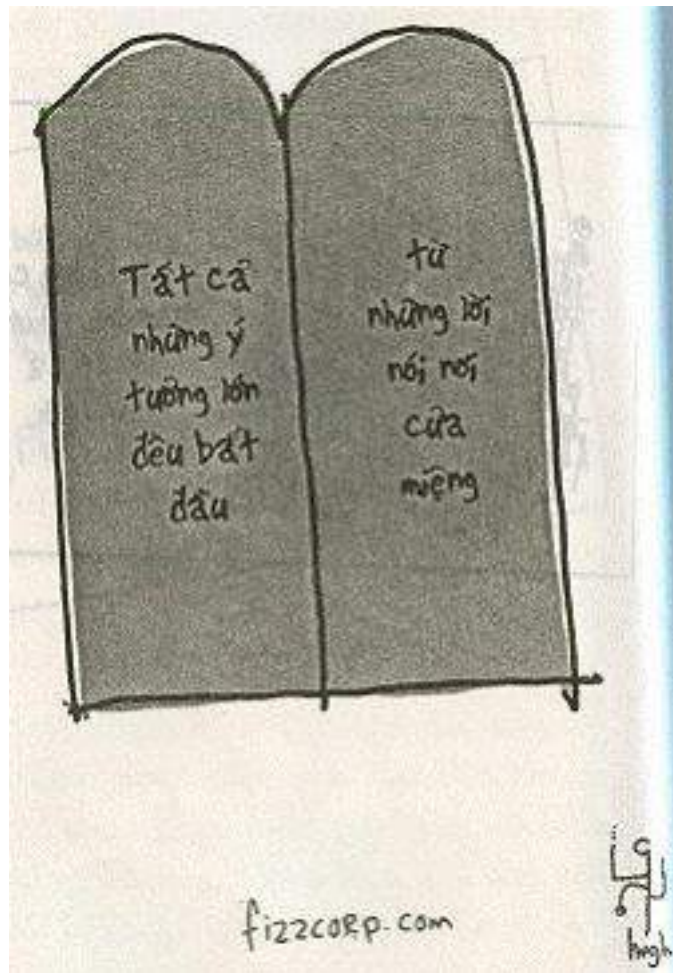 Tất cả
những ý
tưởng lớn
đều bắt
đầu
từ
những lời
nói nơi
cửa
miệng
fizzcorp.com
hugh